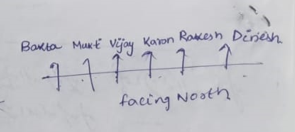 Barkta Mukti Vijay Karan Rakesh Dinesh
facing North